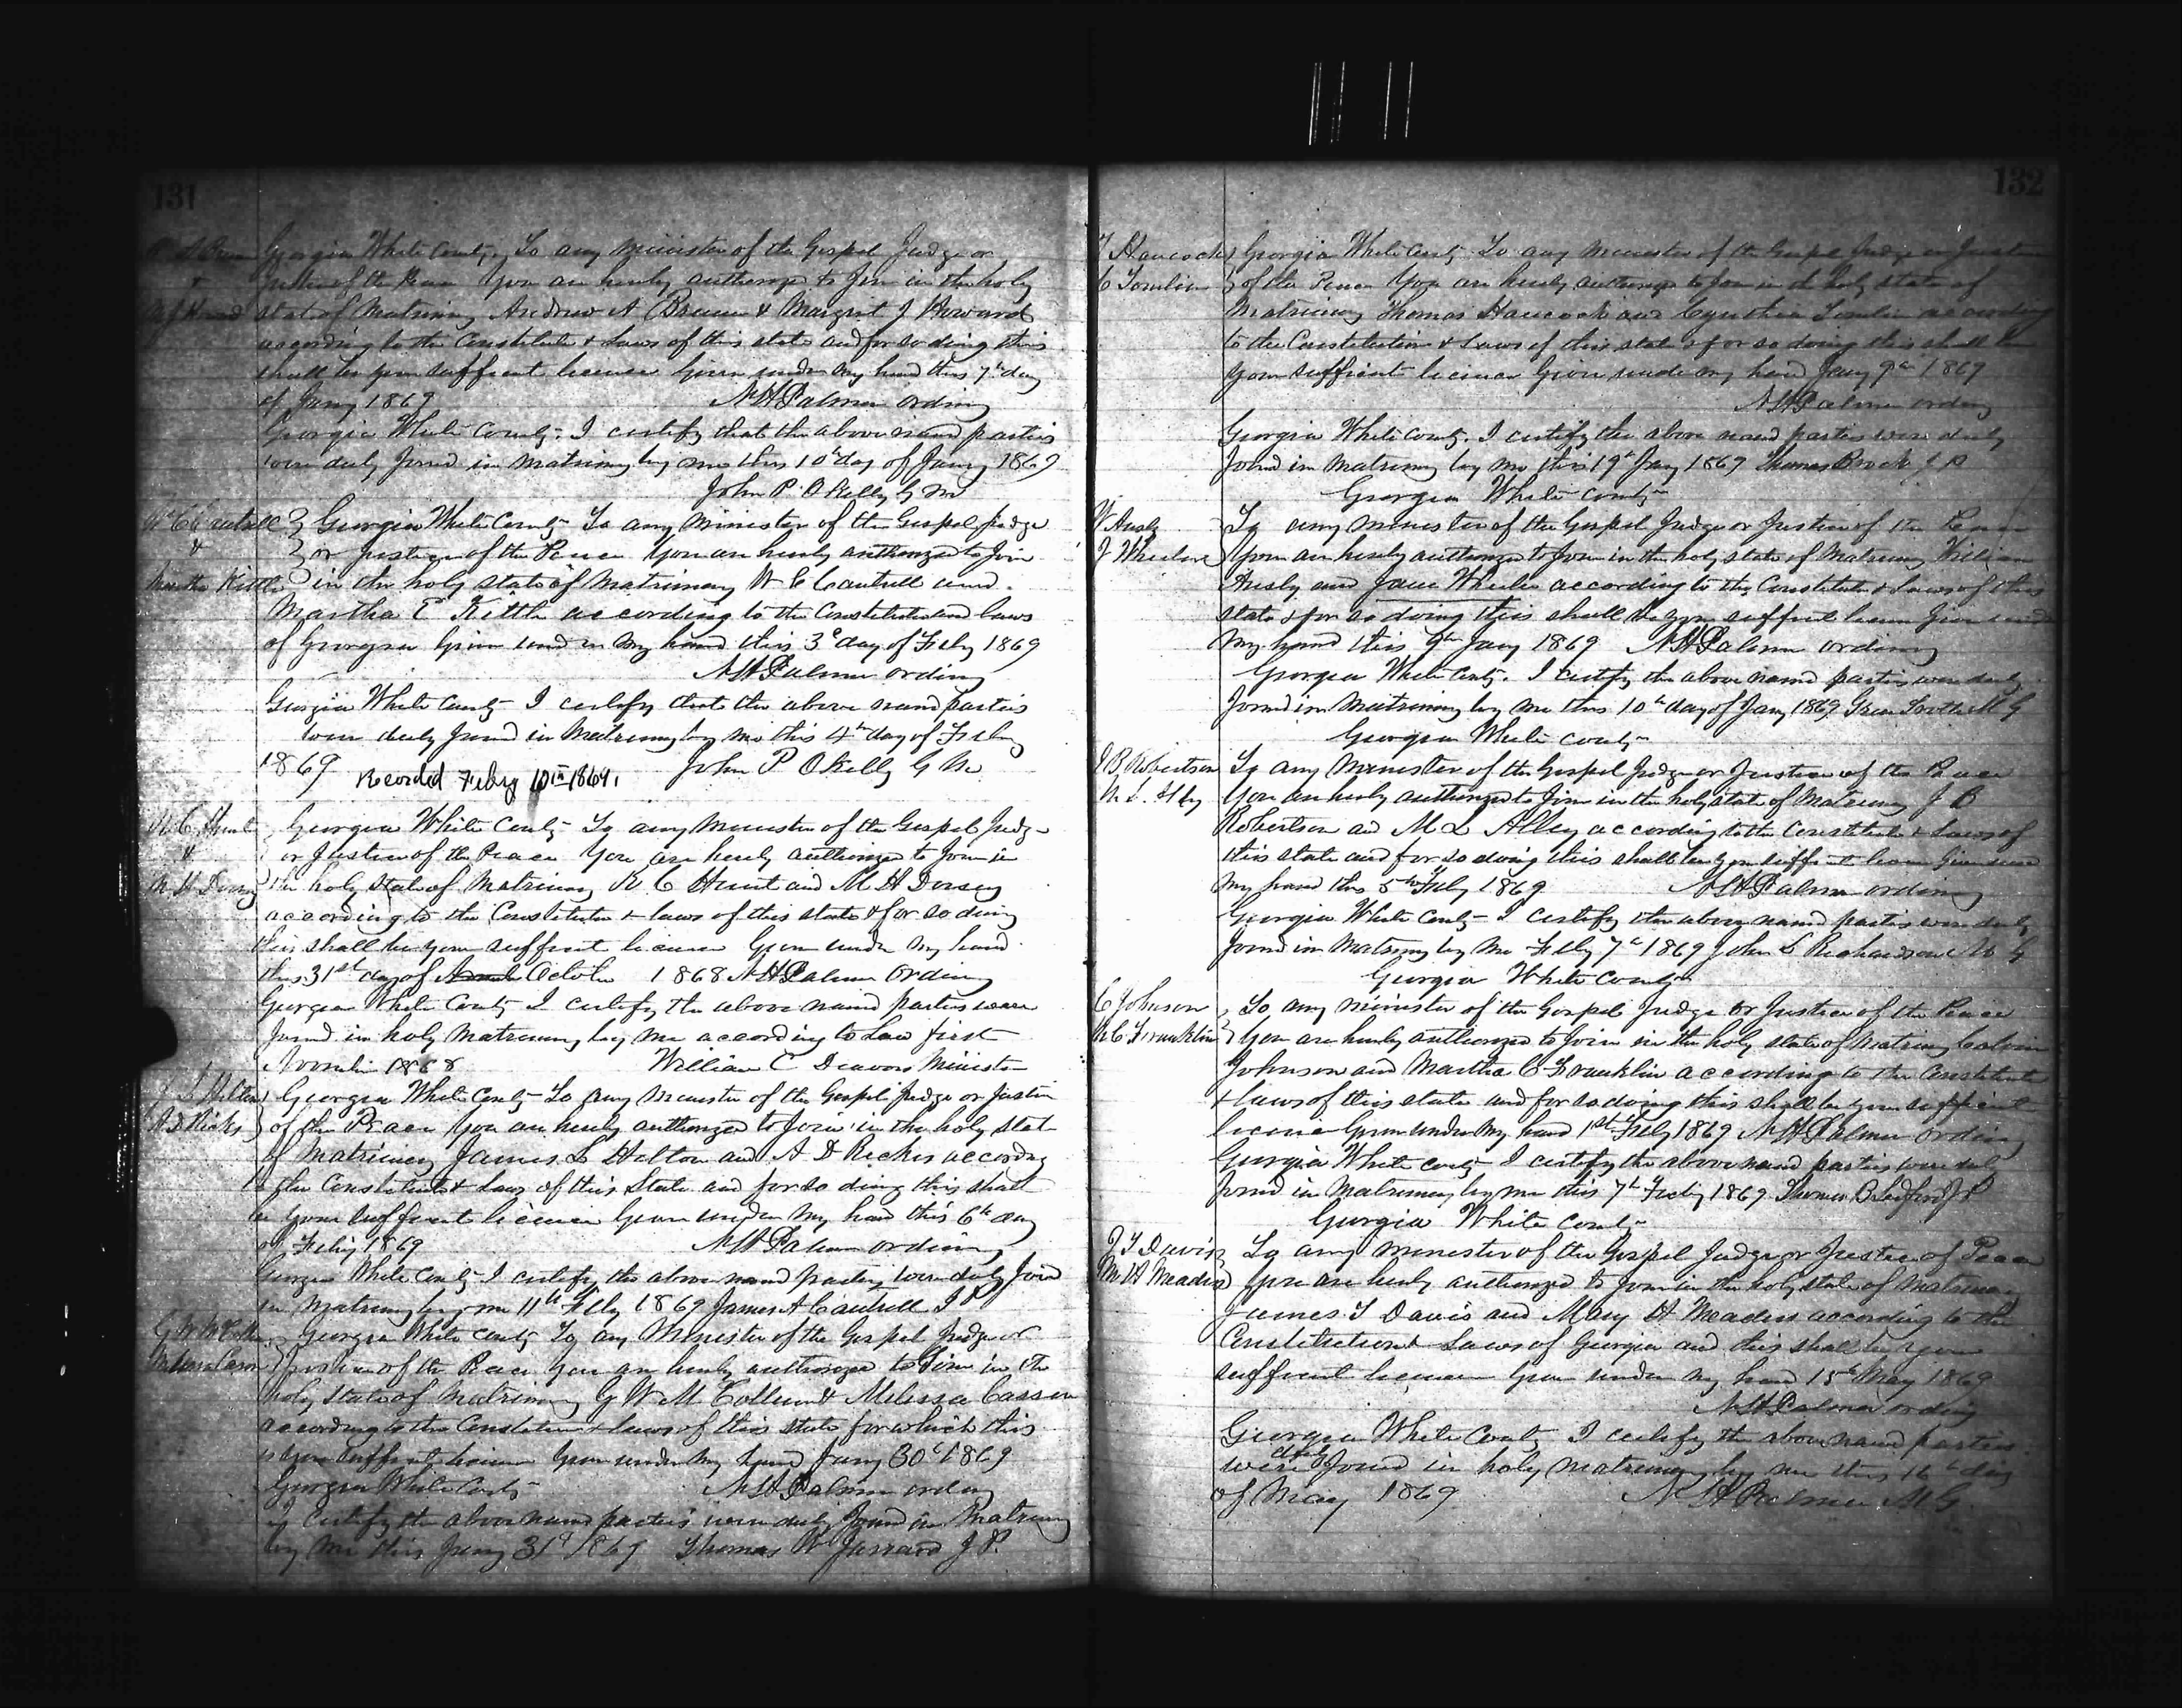 131
Georgia White County, To any minister of the Gospel Judge or
&
Justice of the Peace You are hereby authorize to Join in the holy
stat of Matrimony Andrew A Brown & Margret J Howard
according to the Constitute & Laws of this state and for so doing this
shall be your suffient license Given under my hand this 7th day
of Jany 1869 N H Palmer ordiny
Georgia White County. I certify that the above named parties
were duly Joined in matrimony by me this 10th day of Jany 1869
John P. OKelly G M
W C Cantrell Georgia White County To any Minister of the Gospel, Judge
& or Justice of the Peace You are hereby authorized to Join
Martha Kittle in the holy state of Matrimony W C Cantrell and
Martha E Kittle according to the Constitute and laws
of Georgia Given under my hand this 3d day of Feby 1869
N H Palmer ordiny
Georgia White County I certify that the above named parties
were duly Joined in Matrimony by me this 4th day of Feby
1869 Recorded Feby 10th 1869. John P OKelly G M
R C Hunt Georgia White County To any Minister of the Gospel Judge
& or Justice of the Peace You are hereby authorized to Join in
M H Dorsey the holy state of Matrimony R C Hunt and M H Dorsey
according to the Constitute & laws of this state & for so doing
this shall be your suffient license Given under my hand
this 31st day of October 1868 N H Palmer Ordiny
Georgia White County I certify the above named parties were
Joined in holy Matrimony by me according to Law first
November 1868 William C Deavors Minister
J L Helton Georgia White County To any Minister of the Gospel Judge or Justice
A D Ricks of the Peace You are hereby authorized to Join in the holy stat
of Matrimony James L Helton and A D Ricks according
to the Constitute & Laws of this State and for so doing this shall
be your suffient license Given under my hand this 6th day
of Feby 1869 N H Palmer ordiny
Georgia White County I certify the above named parties were duly Joind
in Matrimony by me 11th Feby 1869 James A Cantrell J P
Georgia White County To any Minister of the Gospel Judge or
Justice of the Peace You are hereby authorized to Join in the
holy state of matrimony G W M Collum & Melissa Cason
according to the Constitution & laws of this State for which this
is your suffient license Given under my hand Jany 30th 1869
Georgia White County N H Palmer ordiny
I certify the above named parties were duly Joined in Matrimony
by me this Jany 31st 1869 Thomas W Jarrard J. P.
132
T Hancock Georgia White County. To any Minister of the Gospel Judge or Justice
C Tomlin of the Peace You are hereby authorize to Join in the holy state of
Matrimony Thomas Hancock and Cynthia Tomlin according
to the Constitution & Laws of this state & for so doing this shall be
your suffient license Given under my hand Jany 9th 1869
N H Palmer ordiny
Georgia White County. I certify the above named parties were duly
Joined in Matrimony by me this 19th Jany 1869 Thomas Brock J P
Georgia White County
W Ausly To any minister of the Gospel Judge or Justice of the Peace
J Wheeler You are hereby authorized to Join in the holy state of Matrimony William
Ausly and Jane Wheeler according to the Constitute & Laws of this
state & for so doing this shall be your suffient license Given under
my hand this 9th Jany 1869 N H Palmer ordiny
Georgia White County. I certify the above named parties were duly
Joined in Matrimony by me this 10th day of Jany 1869
Georgia White County
J B Robertson To any Minister of the Gospel Judge or Justice of the Peace
You are hereby authorized to Join in the holy state of Matrimony J B
Robertson and M L Alley according to the Constitute & Laws of
this state and for so doing this shall be your suffient license Given under
my hand this 5th Feby 1869 N H Palmer ordiny
Georgia White County I certify the above named parties were duly
Joined in Matrimony by me Feby 7th 1869 John S Richardson M G
Georgia White County
C Johnson To any minister of the Gospel Judge or Justice of the Peace
M C Franklin You are hereby authorized to Join in the holy state of Matrimony Calvin
Johnson and Martha C Franklin according to the Constitute
& laws of this state and for so doing this shall be your suffient
license Given under my hand 1st Feby 1869 N H Palmer ordiny
Georgia White County I certify the above named parties were duly
Joined in Matrimony by me this 7th Feby 1869 Thomas B Ledford J P
Georgia White County
J T Davis To any minister of the Gospel Judge or Justice of Peace
M H Meaders You are hereby authorized to Join in the holy state of Matrimony
James T Davis and Mary H Meaders according to the
Constitution & Laws of Georgia and this shall be your
suffient license Given under my hand 15th May 1869
N H Palmer ordiny
Georgia White County I certify the above named parties
were duly Joined in holy matrimony by me this 16th day
of May 1869 N H Palmer M G